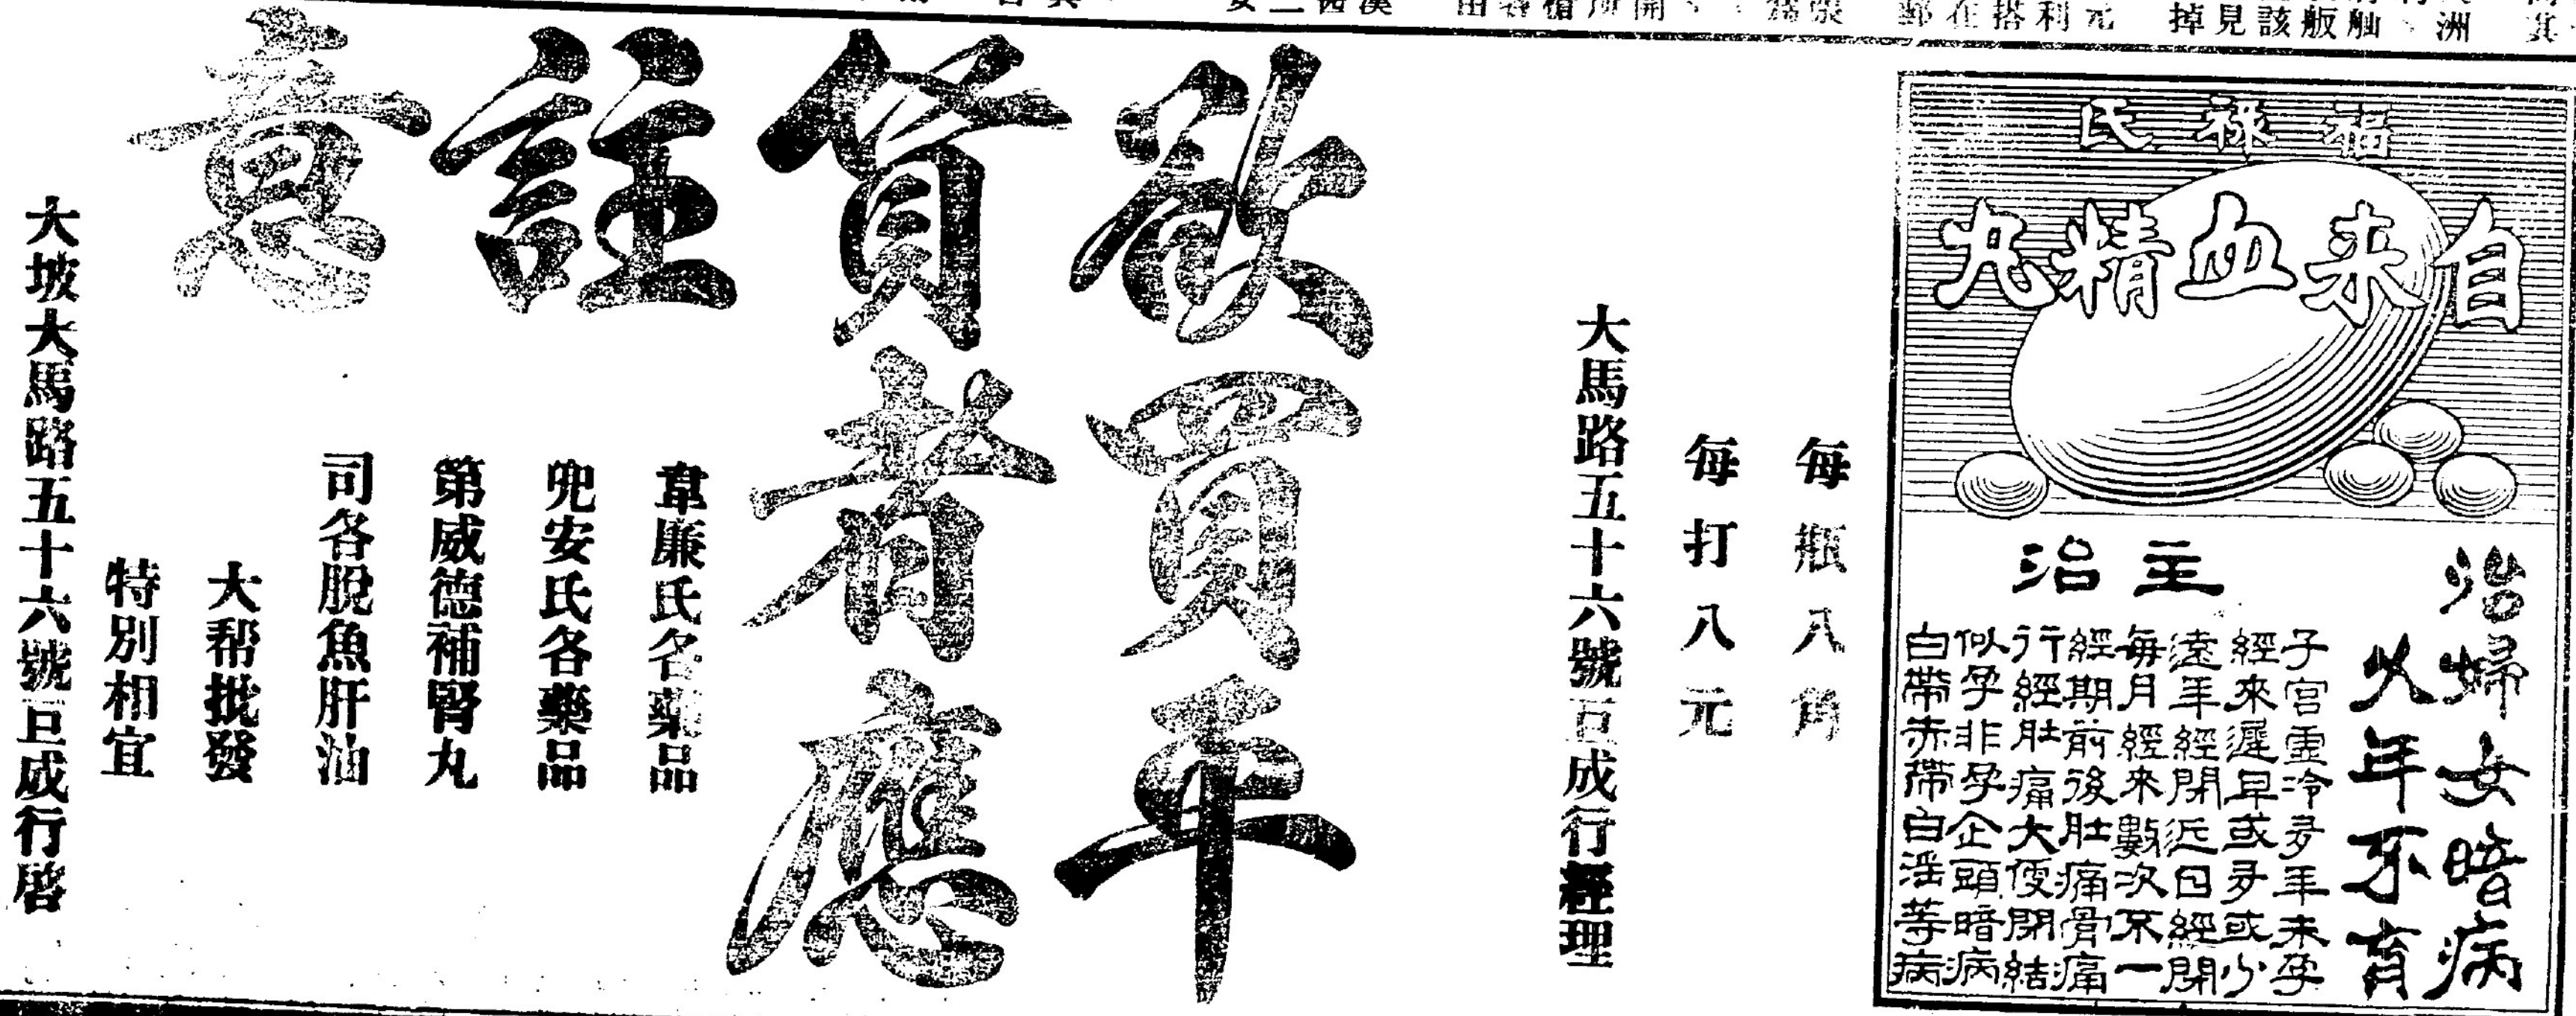 福祿氏
自来血精丸
治婦女暗病
久年不育
主治
子宮虛冷多年未孕
經來遲早或多或少
遠年經閉近日經閉
每月經來數次不一
經期前後肚痛骨痛
行經肚痛大便閉結
似孕非孕企頭暗病
白帶赤帶白淫等病
每瓶八角
每打八元
大馬路五十六號亘成行經理
欲買平
貨者應
註
意
韋廉氏各藥品
兜安氏各藥品
第威德補腎丸
司各脫魚肝油
大帮批發
特別相宜
大坡大馬路五十六號亘成行啓